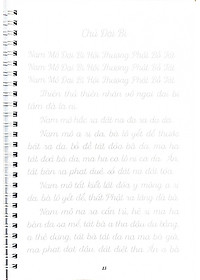 Chú Đại Bi
Nam Mô Đại Bi Hội Thượng Phật Bồ Tát
Nam Mô Đại Bi Hội Thượng Phật Bồ Tát
Nam Mô Đại Bi Hội Thượng Phật Bồ Tát
Thiên thủ thiên nhãn vô ngại đại bi
tâm đà la ni.
Nam mô hắc ra đát na đa ra dạ da.
Nam mô a rị da, bà lô yết đế thước
bát ra da, bồ đề tát đỏa bà da, ma ha
tát đỏa bà da, ma ha ca lô ni ca da. Án
tát bàn ra phạt duệ số đát na đát tỏa.
Nam mô tất kiết lật đỏa y mông a rị
da, bà lô kiết đế, thất Phật ra lăng đà bà.
Nam mô na ra cẩn trì, hê rị, ma ha
bàn đa sa mế, tát bà a tha đậu du bằng,
a thệ dựng, tát bà tát đa na ma bà già
ma phạt đạt đậu, đát điệt tha. Án a bà
33